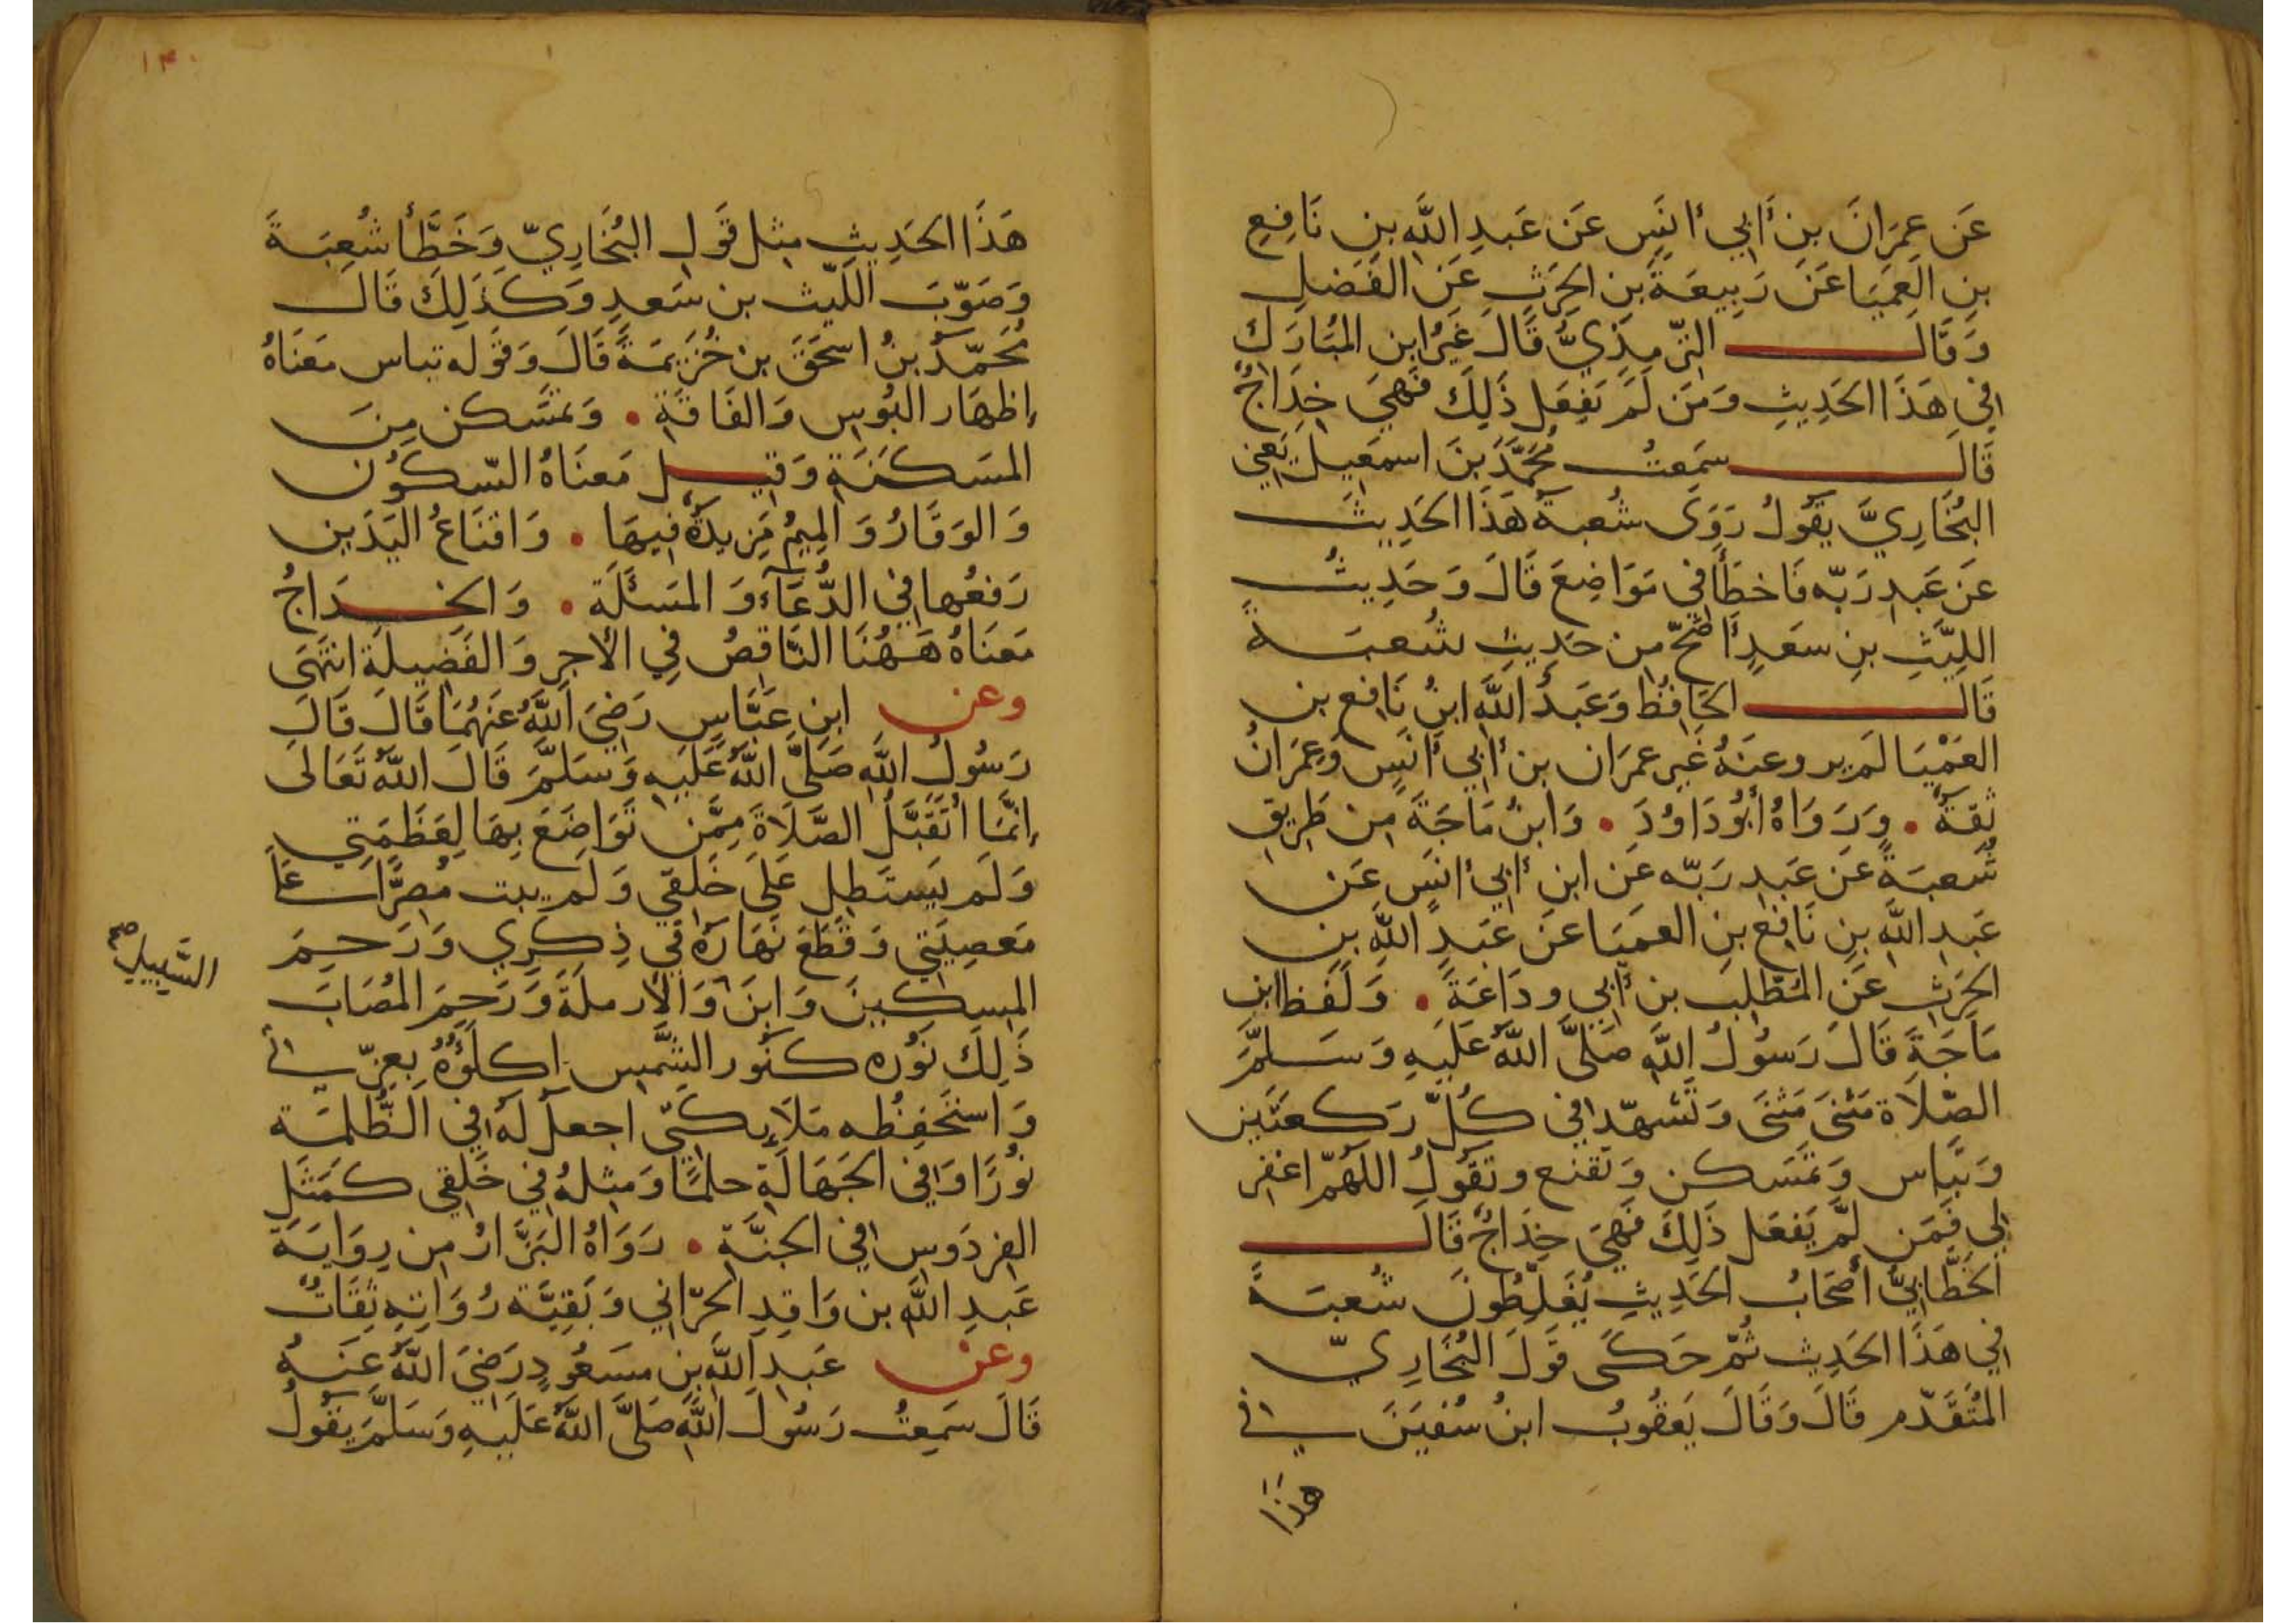 عَن عِمرَانَ بنِ أَبِي أَنَسٍ عَن عَبدِ اللَّهِ بنِ نَافِعِ
بنِ العَميَا عَن رَبِيعَةَ بنِ الحَرثِ عَنِ الفَضلِ
وَقَالَ التِّرمِذِيُّ قَالَ غَيرُ ابنِ المُبَارَكِ
فِي هَذَا الحَدِيثِ وَمَن لَم يَفعَل ذَلِكَ فَهِيَ خِدَاجٌ
قَالَ سَمِعتُ مُحَمَّدَ بنَ اسمعِيلَ يَعنِي
البُخَارِيَّ يَقُولُ رَوَى شُعبَةُ هَذَا الحَدِيثَ
عَن عَبدِ رَبِّه فَاخطَأَ فِي مَوَاضِعَ قَالَ وَحَدِيثُ
اللَّيثِ بنِ سَعدٍ أَصَحُّ مِن حَدِيثِ شُعبَةَ
قَالَ الحَافِظُ وَعَبدُ اللَّهِ ابنُ نَافِعِ بنِ
العَمْيَا لَم يرو عنهُ غَير عمرَان بن أَبِي أَنَسٍ وَعِمرَانُ
ثِقَةٌ . وَرَوَاهُ أَبُو دَاوُدَ . وَابنُ مَاجَةَ مِن طَرِيقِ
شُعبَةَ عَن عَبدِ رَبِّه عَنِ ابنِ أَبِي أَنَسٍ عَن
عَبدِ اللَّهِ بنِ نَافِعِ بنِ العميَا عَن عَبدِ اللَّهِ بنِ
الحَرثِ عَنِ المُطَّلِبِ بنِ أَبِي وِدَاعَةَ . وَلَفظ ابنِ
مَاجَةَ قَالَ رَسُولُ اللَّهِ صَلَّى اللَّهُ عَلَيهِ وَسَلَّمَ
الصَّلَاة مَثنَى مَثنَى وَتَشَهَّد فِي كُلِّ رَكعَتَينِ
وَتبَاس وَتمَسكن وَتَقنع وتَقُولُ اللَّهُمَّ اغفِر
لِي فَمَن لَم يَفعَل ذَلِكَ فَهِيَ خِدَاجٌ قَالَ
الخَطَّابِيُّ أَصحَابُ الحَدِيثِ يُغَلِّطُونَ شُعبَةَ
فِي هَذَا الحَدِيث ثُمَّ حَكَى قَولَ البُخَارِيِّ
المُتَقَدِّم قَالَ وَقَالَ يَعقُوبُ ابنُ سُفيَنَ فِي
هذا
١٣٠
هَذَا الحَدِيثِ مِثلَ قَولِ البُخَارِيِّ وَخَطَّأ شُعبَةَ
وَصَوَّبَ اللَّيثَ بن سَعدٍ وَكَذَلِكَ قَالَ
مُحَمَّدُ بنُ اسحَقَ بن خُزَيمَةَ قَالَ وَقَوله تباس مَعنَاهُ
إِظهَار البُوسِ وَالفَاقَةِ . وَتمَسكن مِنَ
المَسكَنَةِ وَقِيلَ مَعنَاهُ السُّكُون
وَالوَقَارُ وَالمِيمُ مَزِيدَةٌ فِيهَا . وَاقنَاعُ اليَدَينِ
رَفعُها فِي الدُّعَاءِ وَالمَسئَلَةِ . وَالخِدَاجُ
مَعنَاهُ هَهُنَا النَّاقِصُ فِي الأَجرِ وَالفَضِيلَةِ انتَهَى
وعن ابنِ عَبَّاسٍ رَضِيَ اللَّهُ عَنهُمَا قَالَ قَالَ
رَسُولُ اللَّهِ صَلَّى اللَّهُ عَلَيهِ وَسَلَّمَ قَالَ اللَّهُ تَعَالَى
إِنَّمَا أَتَقَبَّلُ الصَّلَاةَ مِمَّن تَوَاضَعَ بِهَا لِعَظَمَتِي
وَلَم يَستَطِل عَلَى خَلقِي وَلَم يبت مُصِرًّا عَلَى
مَعصِيَتِي وَقَطَعَ نَهَارَهُ فِي ذِكرِي وَرَحِمَ
المِسكِينَ وَابنَ وَالأَرملَةَ وَرَحِمَ المُصَابَ
السَّبِيلِ صح
ذَلِكَ نُوره كَنُورِ الشَّمسِ اكلَؤُهُ بِعِزَّتِي
وَاستَحفِظُه مَلَائِكَتِي اجعلُ لَهُ فِي الظُّلمَةِ
نُورًا وَفِي الجَهَالَةِ حلمًا وَمَثلُهُ فِي خَلقِي كَمَثَلِ
الفِردَوسِ فِي الجَنَّةِ . رَوَاهُ البَزَّارُ مِن رِوَايَةِ
عَبدِ اللَّهِ بن وَاقِدِ الحرَّانِي وَبَقِيَّة رُوَاتِهِ ثِقَاتٌ
وعن عَبدِ اللَّهِ بنِ مسعُودٍ رَضِيَ اللَّهُ عَنهُ
قَالَ سَمِعتُ رَسُولَ اللَّهِ صَلَّى اللَّهُ عَلَيهِ وَسَلَّمَ يَقُولُ